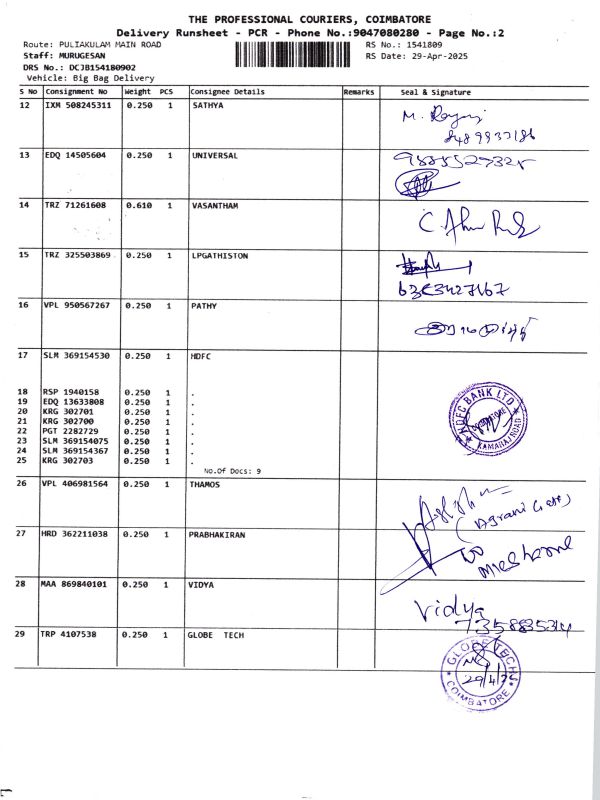 THE PROFESSIONAL COURIERS, COIMBATORE
Delivery Runsheet - PCR - Phone No.:9047080280 - Page No.:2
Route: PULIAKULAM MAIN ROAD RS No.: 1541809
Staff: MURUGESAN RS Date: 29-Apr-2025
DRS No.: DCJB154180902
Vehicle: Big Bag Delivery
S No Consignment No Weight PCS Consignee Details Remarks Seal & Signature
12 IXM 508245311 0.250 1 SATHYA
M.
8489837186
13 EDQ 14505604 0.250 1 UNIVERSAL
14 TRZ 71261608 0.610 1 VASANTHAM
15 TRZ 325503869 0.250 1 LPGATHISTON
16 VPL 950567267 0.250 1 PATHY
17 SLM 369154530 0.250 1 HDFC
18 RSP 1940158 0.250 1 .
19 EDQ 13633808 0.250 1 .
20 KRG 302701 0.250 1 .
21 KRG 302700 0.250 1 .
22 PGT 2282729 0.250 1 .
23 SLM 369154075 0.250 1 .
24 SLM 369154367 0.250 1 .
25 KRG 302703 0.250 1 .
HDFC BANK LTD
COIMBATORE
KAMARAJ ROAD
No.Of Docs: 9
26 VPL 406981564 0.250 1 THAMOS
27 HRD 362211038 0.250 1 PRABHAKIRAN
28 MAA 869840101 0.250 1 VIDYA
Vidya
7358835314
29 TRP 4107538 0.250 1 GLOBE TECH
GLOBE TECH
29/4/25
COIMBATORE